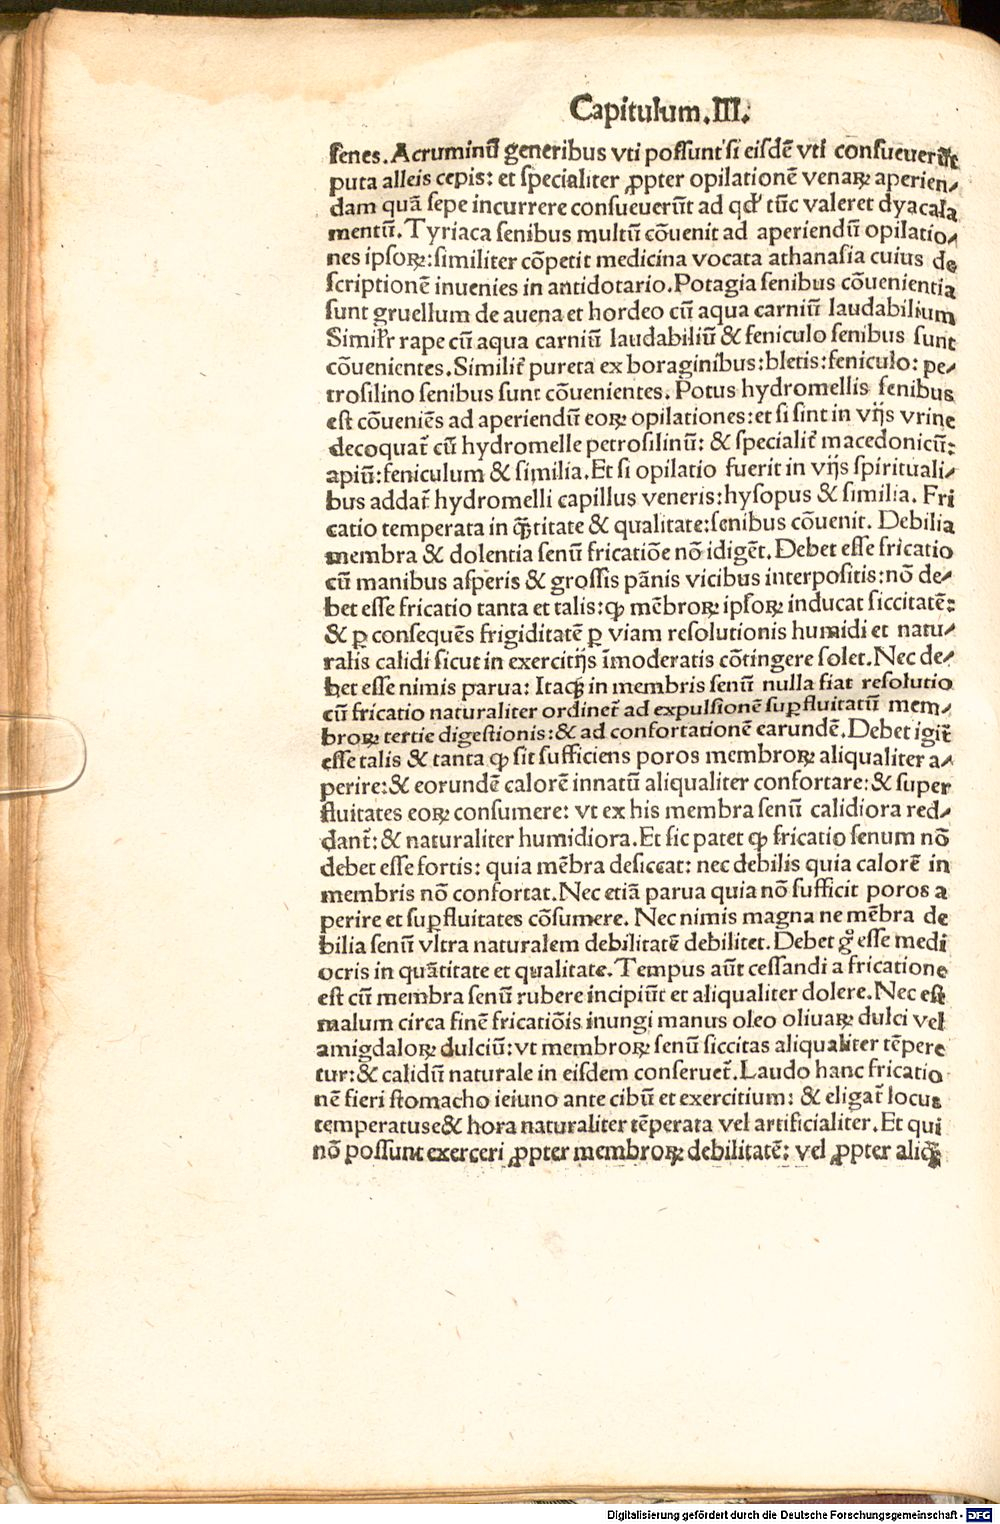 Capitulum.III.
senes.Acruminū generibus vti possunt si eisdē vti consueuerūt
puta alleis cepis: et specialiter ꝓpter opilationē venaꝝ aperien⸗
dam quā sepe incurrere consueuerūt ad qd̛ tūc valeret dyacala
mentū.Tyriaca senibus multū cōuenit ad aperiendū opilatio⸗
nes ipsoꝝ:similiter cōpetit medicina vocata athanasia cuius de
scriptionē inuenies in antidotario.Potagia senibus cōuenientia
sunt gruellum de auena et hordeo cū aqua carniū laudabilium
Simil̛r rape cū aqua carniū laudabiliū & feniculo senibus sunt
cōuenientes.Similit̛ pureta ex boraginibus:bletis:feniculo: pe⸗
trosilino senibus sunt cōuenientes. Potus hydromellis senibus
est cōueniēs ad aperiendū eoꝝ opilationes:et si sint in vijs vrine
decoquat̛ cū hydromelle petrosilinū: & specialit̛ macedonicū:
apiū:feniculum & similia.Et si opilatio fuerit in vijs spirituali⸗
bus addat̛ hydromelli capillus veneris:hysopus & similia. Fri
catio temperata in q̄titate & qualitate:senibus cōuenit. Debilia
membra & dolentia senū fricatiōe nō īdigēt.Debet esse fricatio
cū manibus asperis & grossis pānis vicibus interpositis:nō de⸗
bet esse fricatio tanta et talis:ꝙ mēbroꝝ ipsoꝝ inducat siccitatē:
& ꝑ consequēs frigiditatē ꝑ viam resolutionis humidi et natu⸗
ralis calidi sicut in exercitijs īmoderatis cōtingere solet.Nec de⸗
bet esse nimis parua: Itaqꝫ in membris senū nulla fiat resolutio
cū fricatio naturaliter ordinet̛ ad expulsionē suꝑfluitatū mem⸗
broꝝ tertie digestionis:& ad confortationē earundē.Debet igit̛
esse talis & tanta ꝙ sit sufficiens poros membroꝝ aliqualiter a⸗
perire:& eorundē calorē innatū aliqualiter confortare:& super
fluitates eoꝝ consumere: vt ex his membra senū calidiora red⸗
dant̛:& naturaliter humidiora.Et sic patet ꝙ fricatio senum nō
debet esse fortis: quia mēbra desiccat: nec debilis quia calorē in
membris nō confortat.Nec etiā parua quia nō sufficit poros a
perire et suꝑfluitates cōsumere. Nec nimis magna ne mēbra de
bilia senū vltra naturalem debilitatē debilitet.Debet gͦ esse medi
ocris in quātitate et qualitate.Tempus aūt cessandi a fricatione
est cū membra senū rubere incipiūt et aliqualiter dolere.Nec est
malum circa finē fricatiōis inungi manus oleo oliuaꝝ dulci vel
amigdaloꝝ dulciū:vt membroꝝ senū siccitas aliqualiter tēpere
tur:& calidū naturale in eisdem conseruet̛.Laudo hanc fricatio
nē fieri stomacho ieiuno ante cibū et exercitium: & eligat̛ locus
temperatuse& hora naturaliter tēperata vel artificialiter.Et qui
nō possunt exerceri ꝓpter membroꝝ debilitatē: vel ꝓpter
Digitalisierung gefördert durch die Deutsche Forschungsgemeinschaft - DFG